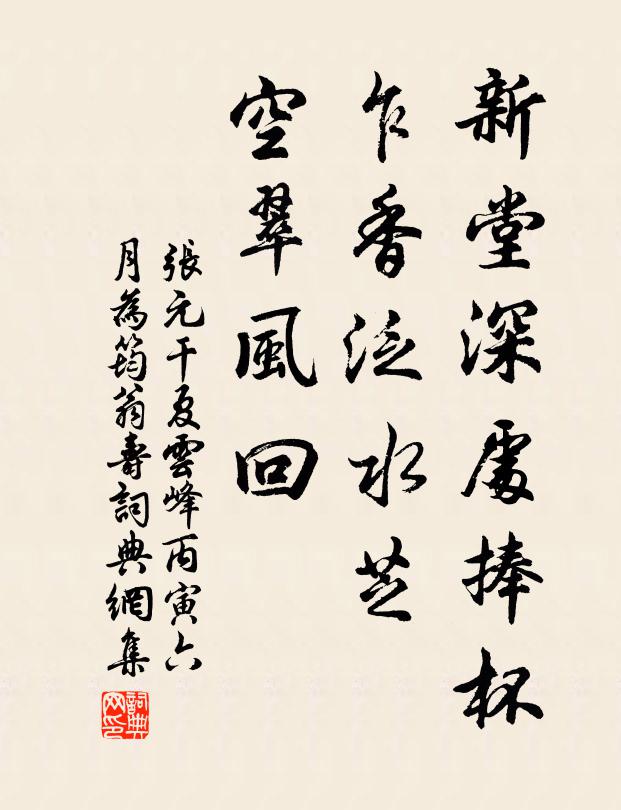 新堂深處捧杯
乍香泛水芝
空翠風回
張元干夏雲峰丙寅六
月為筠翁壽詞典網集
詞典
网印